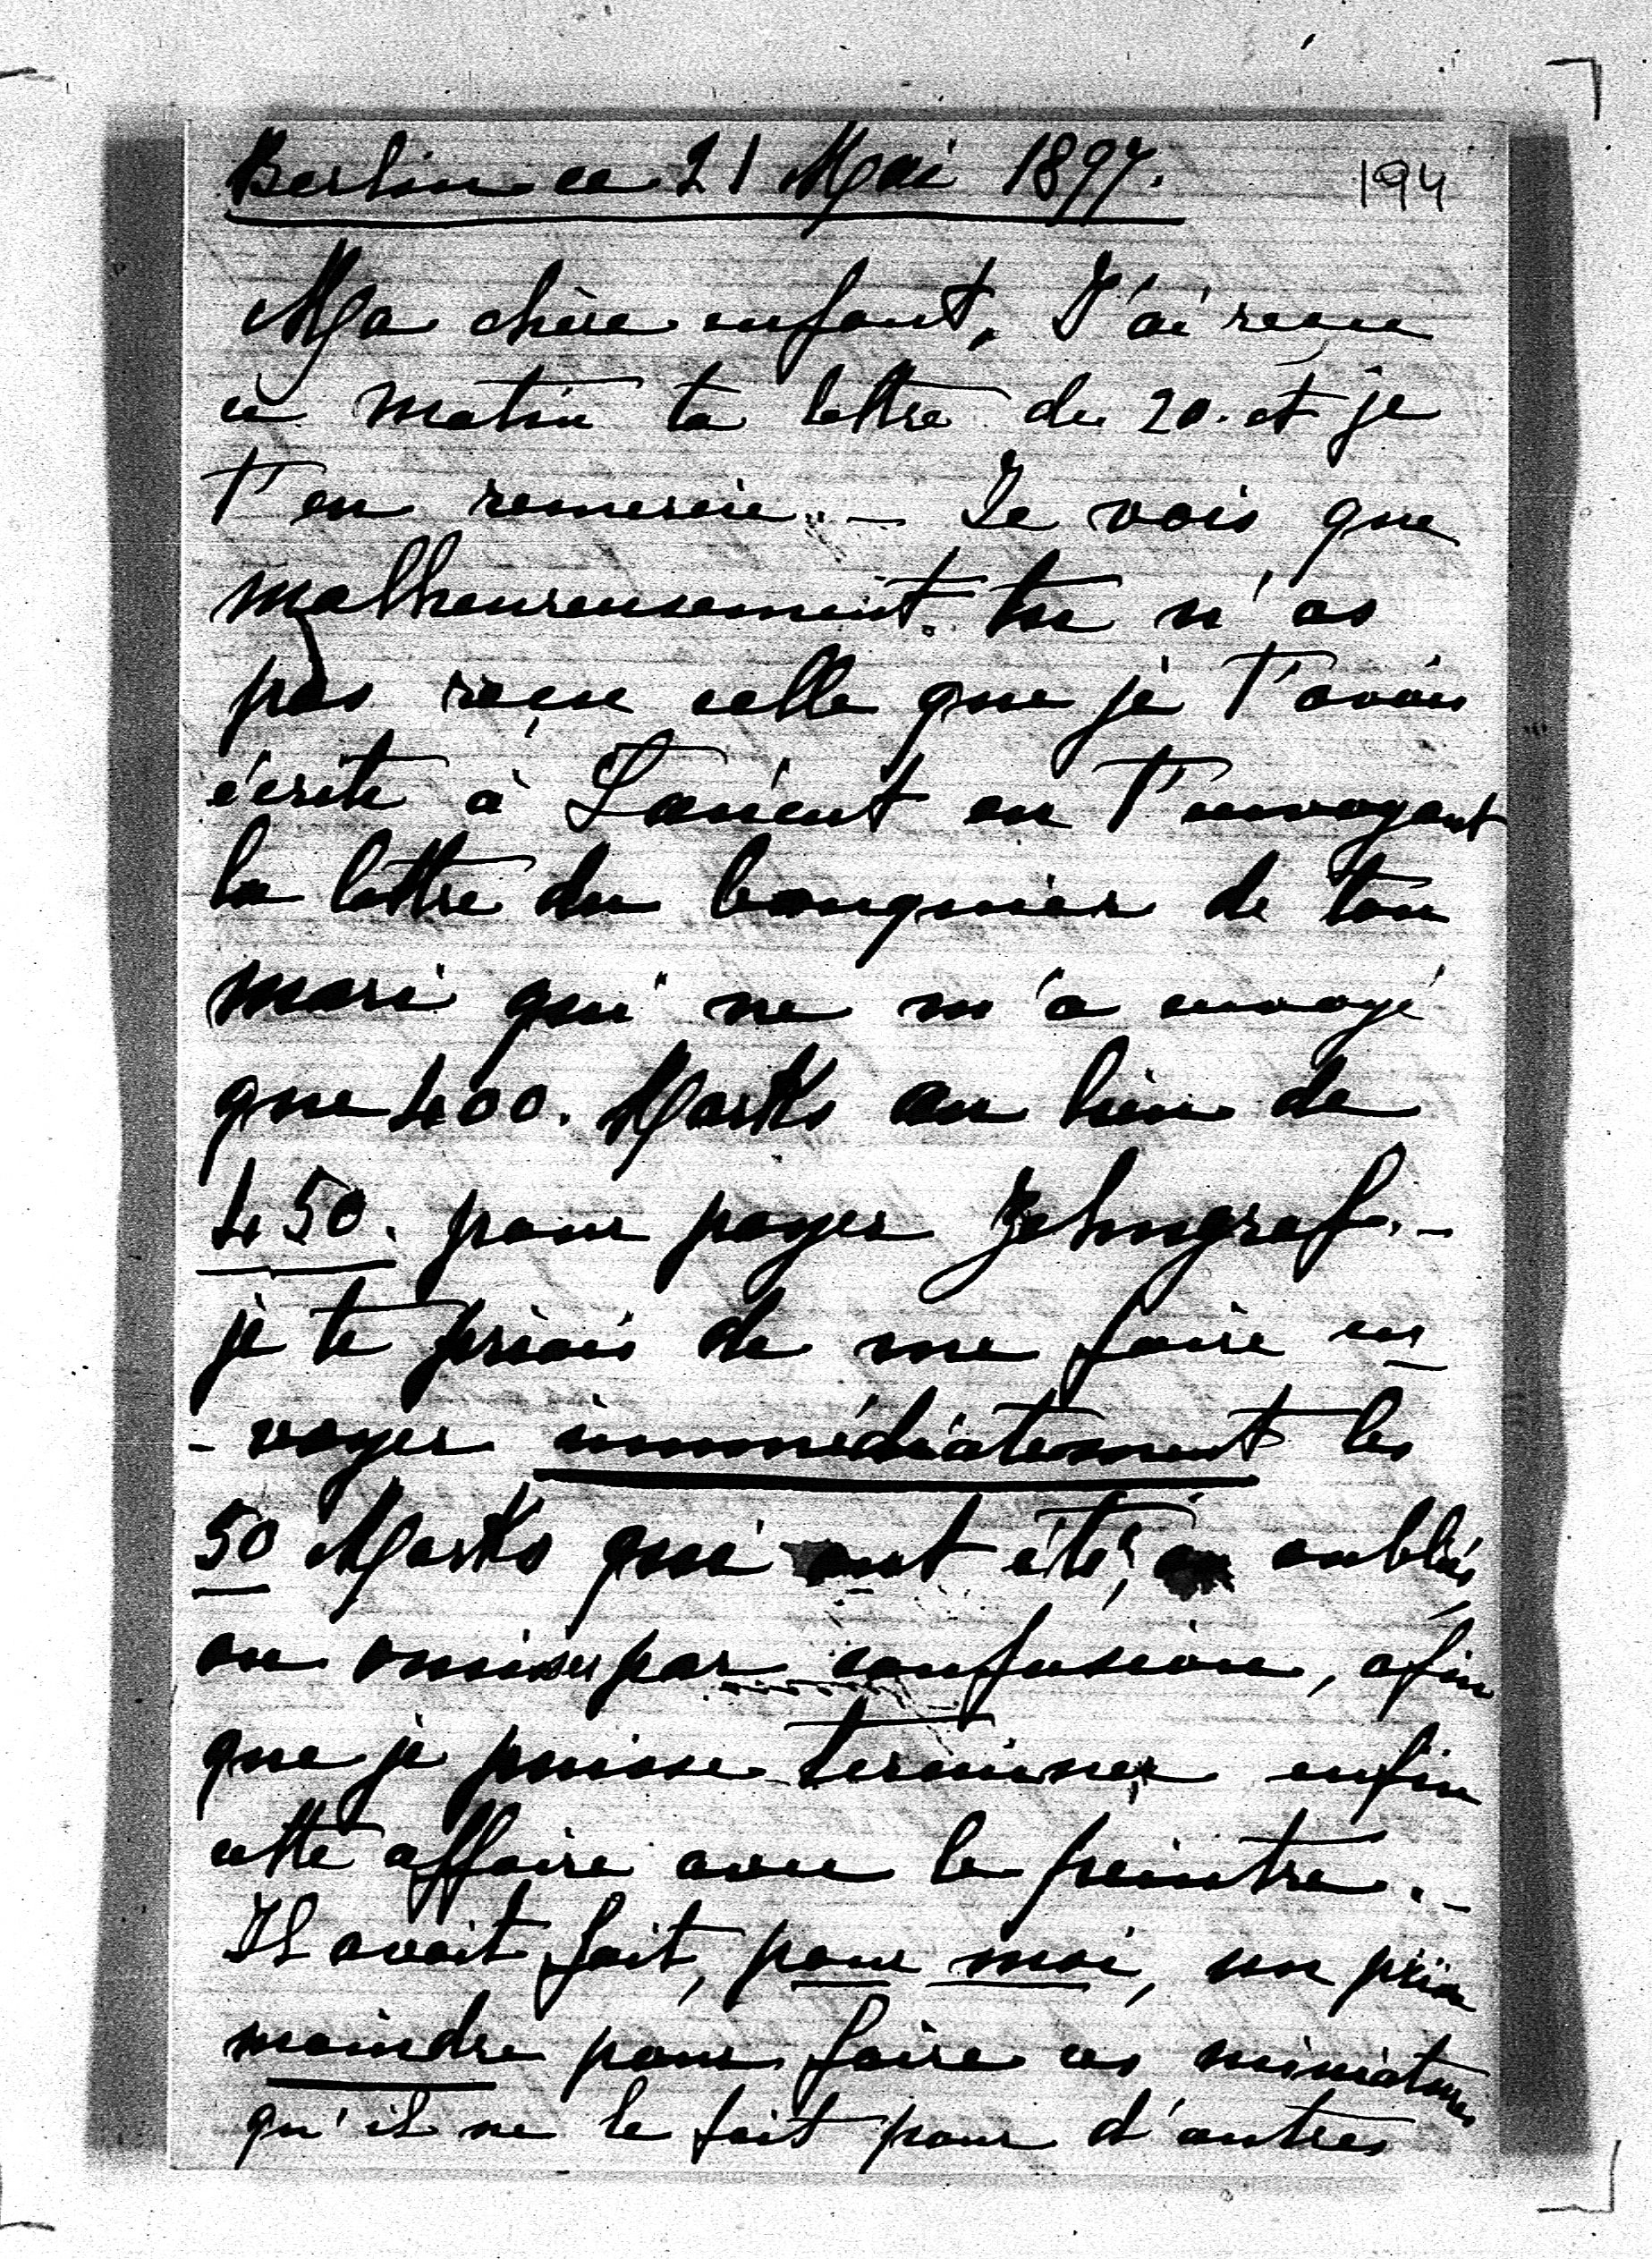 Berlin ce 21 Mai 1897.
194
Ma chère enfant, J'ai reçu
ce matin ta lettre du 20. et je
t'en remercie. — Je vois que
malheureusement tu n'as
pas reçu celle que je t'avais
écrite à en t'envoyant
la lettre du banquier de ton
mari qui ne m'a envoyé
que 400. Marks au lieu de
450. pour payer Zehngraf. —
je te priais de me faire en
- voyer immédiatement les
50 Marks qui ont été, oubliés
ou omises par confusion, afin
que je puisse terminer enfin
cette affaire avec le peintre. —
Il avait fait, pour moi, un prix
moindre pour faire ces miniatures
qu'il ne le fait pour d'autres